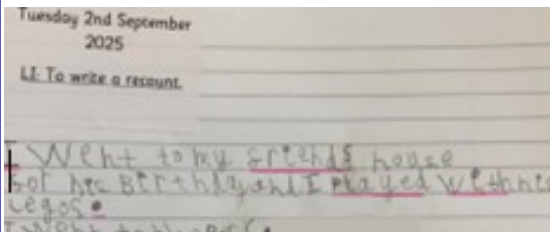 Tuesday 2nd September
2025
LI: To write a recount.
I Went to my friends house
for his Birthday and I played with his
legos.
I Went to the park.